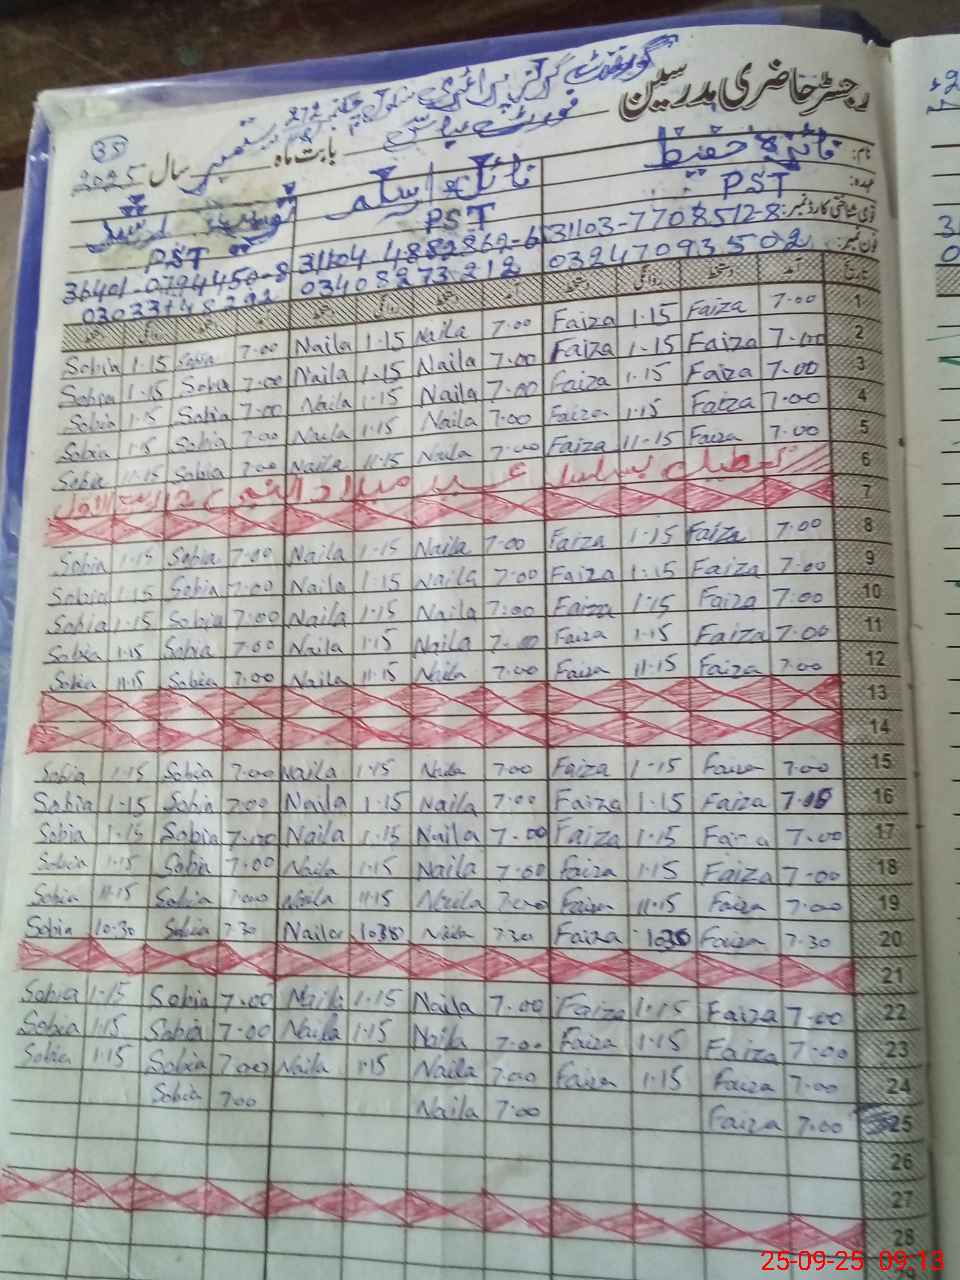 رجسٹر حاضری مدرسین گورنمنٹ گرلز پرائمری سکول
35 2025 سال ستمبر بابت ماہ فورٹ عباس
نام: فائزہ حفیظ نائلہ اسلم
عہدہ: PST PST PST
قومی شناختی کارڈ نمبر: 31103-7708512-8 31104 4882862-6 36401-0794450-8
فون نمبر: 03247093502 03408273212
تاریخ آمد دستخط روانگی دستخط آمد دستخط روانگی دستخط آمد دستخط روانگی دستخط
Sobia 1.15 Sobia 7.00 Naila 1.15 Naila 7.00 Faiza 1.15 Faiza 7.00 1
Sobia 1.15 Sobia 7.00 Naila 1.15 Naila 7.00 Faiza 1.15 Faiza 7.00 2
Sobia 1.5 Sobia 7.00 Naila 1.15 Naila 7.00 Faiza 1.15 Faiza 7.00 3
Sobia 1.15 Sobia 7.00 Naila 1.15 Naila 7.00 Faiza 1.15 Faiza 7.00 4
Sobia 11.15 Sobia 7.00 Naila 11.15 Naila 7.00 Faiza 11.15 Faiza 7.00 5
6 تعطیل بسلسلہ عید میلاد النبی 12 ربیع الاول
7
Sobia 1.15 Sobia 7.00 Naila 1.15 Naila 7.00 Faiza 1.15 Faiza 7.00 8
Sobia 1.15 Sobia 7.00 Naila 1.15 Naila 7.00 Faiza 1.15 Faiza 7.00 9
Sobia 1.15 Sobia 7:00 Naila 1.15 Naila 7:00 Faiza 1.15 Faiza 7.00 10
Sobia 1.15 Sobia 7.00 Naila 1.15 Naila 7.00 Faiza 1.15 Faiza 7.00 11
Sobia 11.15 Sobia 7.00 Naila 11.15 Naila 7.00 Faiza 11.15 Faiza 7.00 12
13
14
Sobia 1.15 Sobia 7.00 Naila 1.15 Naila 7.00 Faiza 1.15 Faiza 7.00 15
Sobia 1.15 Sobia 7.00 Naila 1.15 Naila 7.00 Faiza 1.15 Faiza 16
Sobia 1.15 Sobia 7.00 Naila 1.15 Naila 7.00 Faiza 1.15 Faiza 7.00 17
Sobia 1.15 Sobia 7.00 Naila 1.15 Naila 7.00 Faiza 1.15 Faiza 7.00 18
Sobia 11.15 Sobia 7.00 Naila 11.15 Naila 7.00 Faiza 11.15 Faiza 7.00 19
Sobia 10.30 Sobia 7.30 Naila 1030 Naila 7.30 Faiza 1030 Faiza 7.30 20
21
Sobia 1.15 Sobia 7.00 Naila 1.15 Naila 7.00 Faiza 1.15 Faiza 7.00 22
Sobia 1.15 Sobia 7.00 Naila 1.15 Naila 7.00 Faiza 1.15 Faiza 7.00 23
Sobia 1.15 Sobia 7.00 Naila 1.15 Naila 7.00 Faiza 1.15 Faiza 7.00 24
Sobia 7.00 Naila 7.00 Faiza 7.00 25
26
27
28
25-09-25 09:13